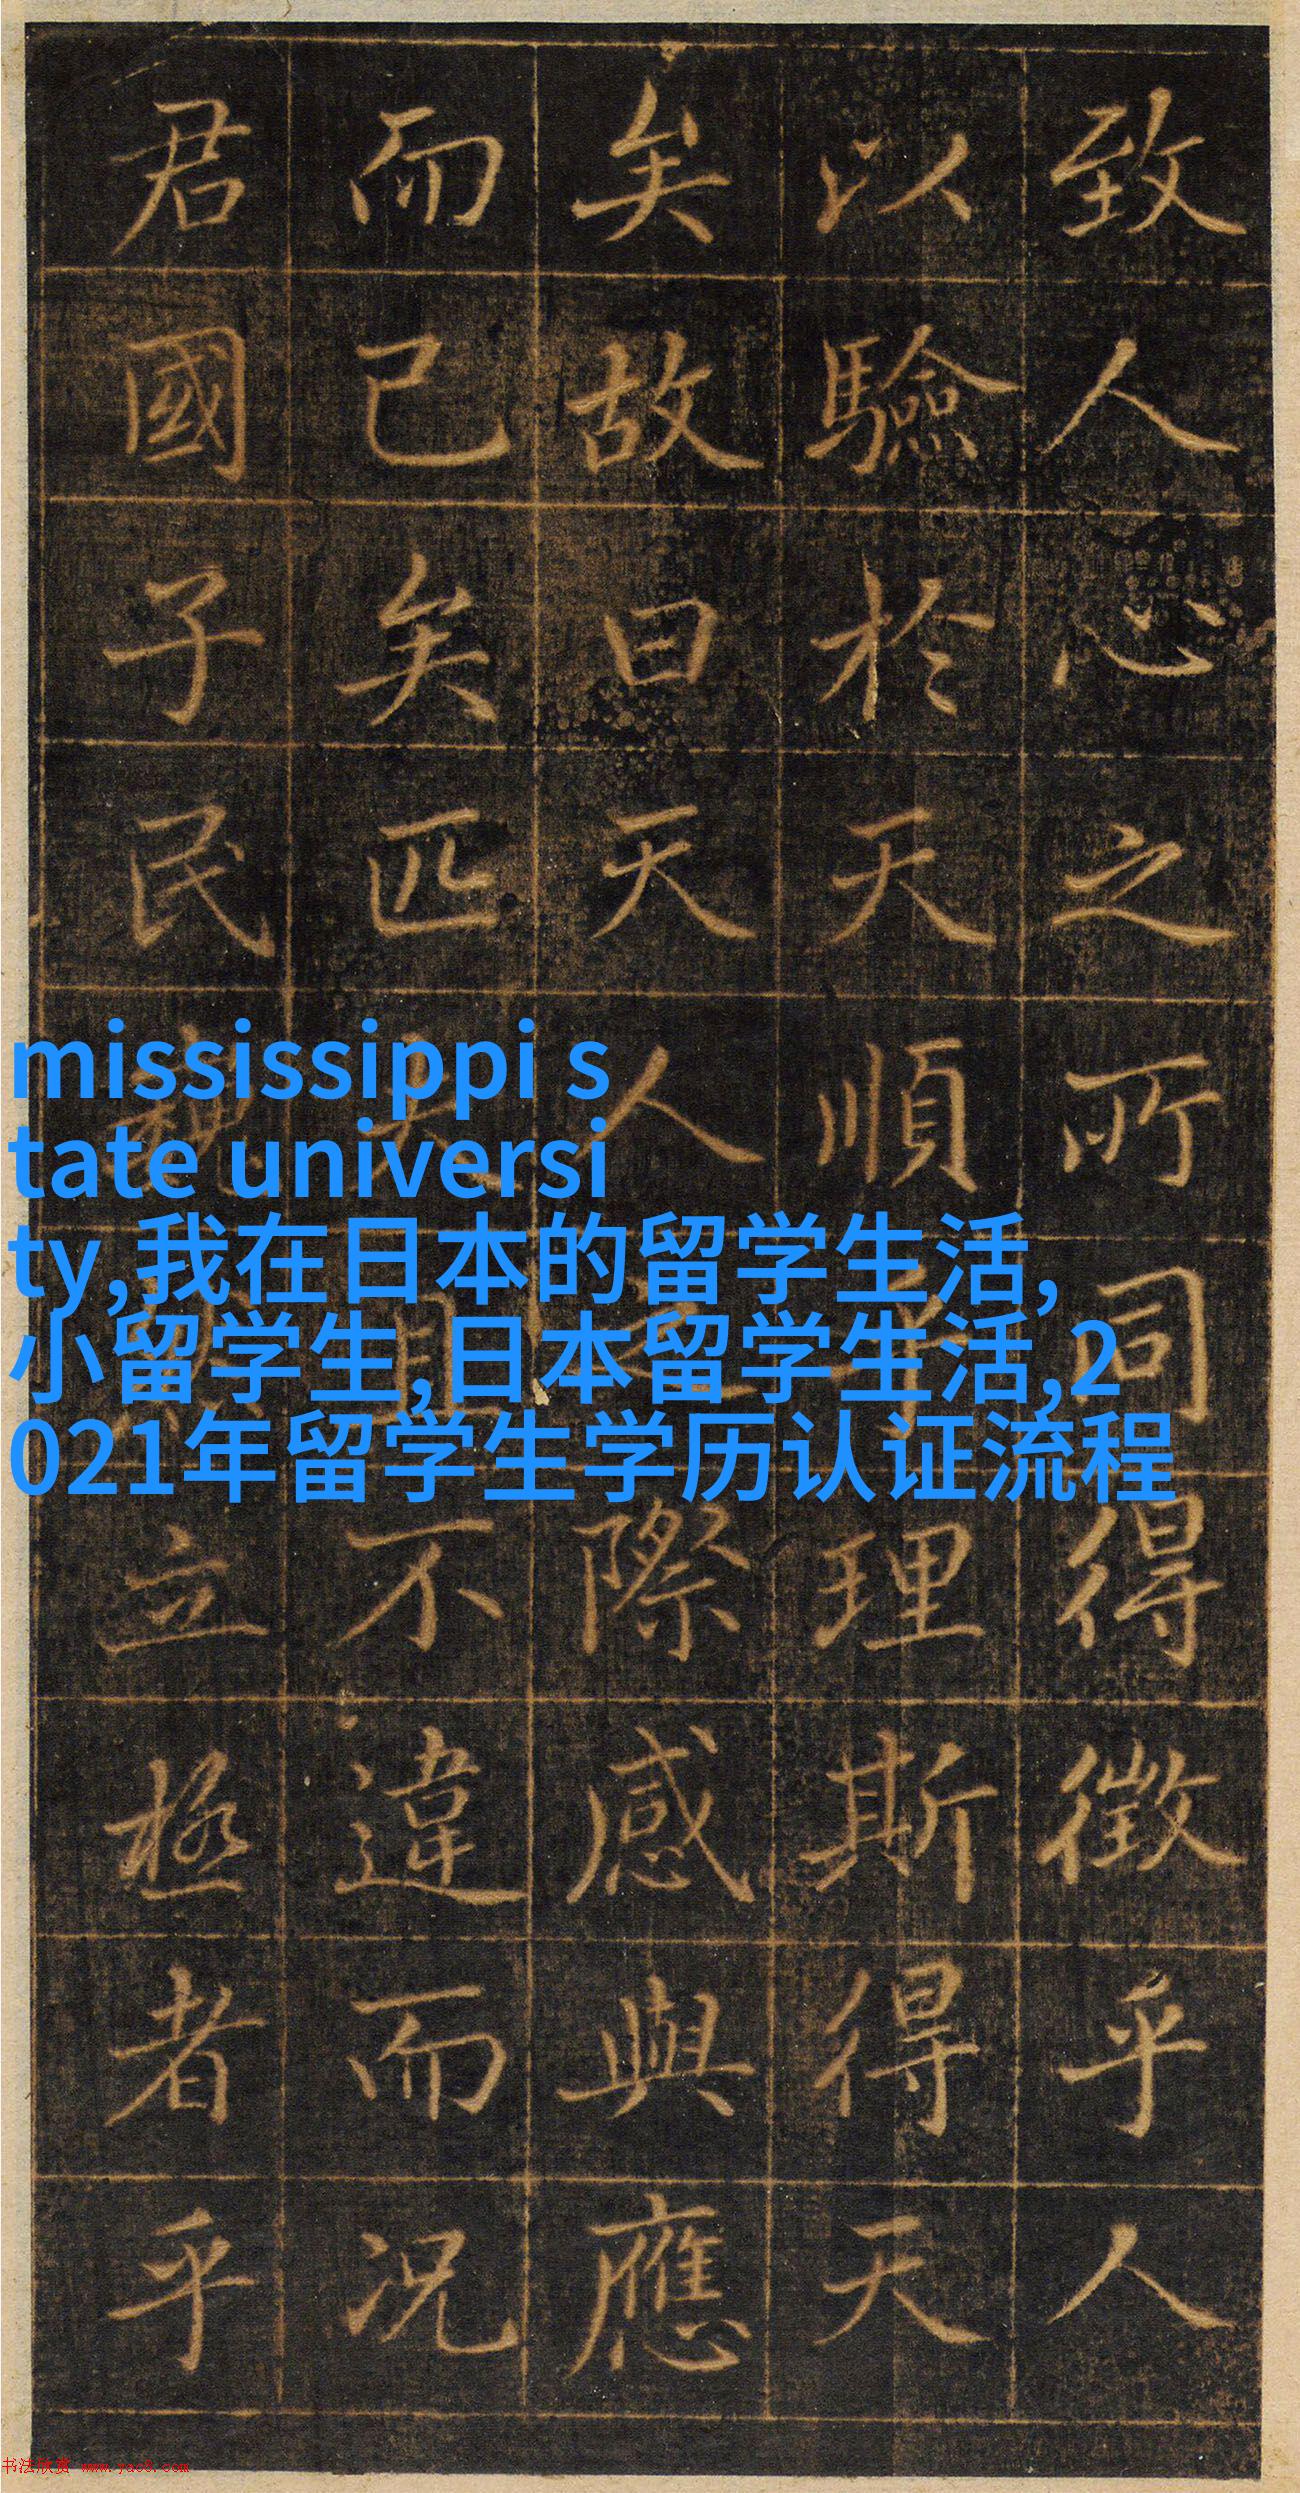 致人心之所同得徵乎人
以驗於天順乎理斯得天
矣故曰天人之際感與應
而已矣匹夫且不違而況
君國子民立極者乎
mississippi s
tate universi
ty,我在日本的留学生活,
小留学生,日本留学生活,2
021年留学生学历认证流程
书法欣赏 www.yac8.com